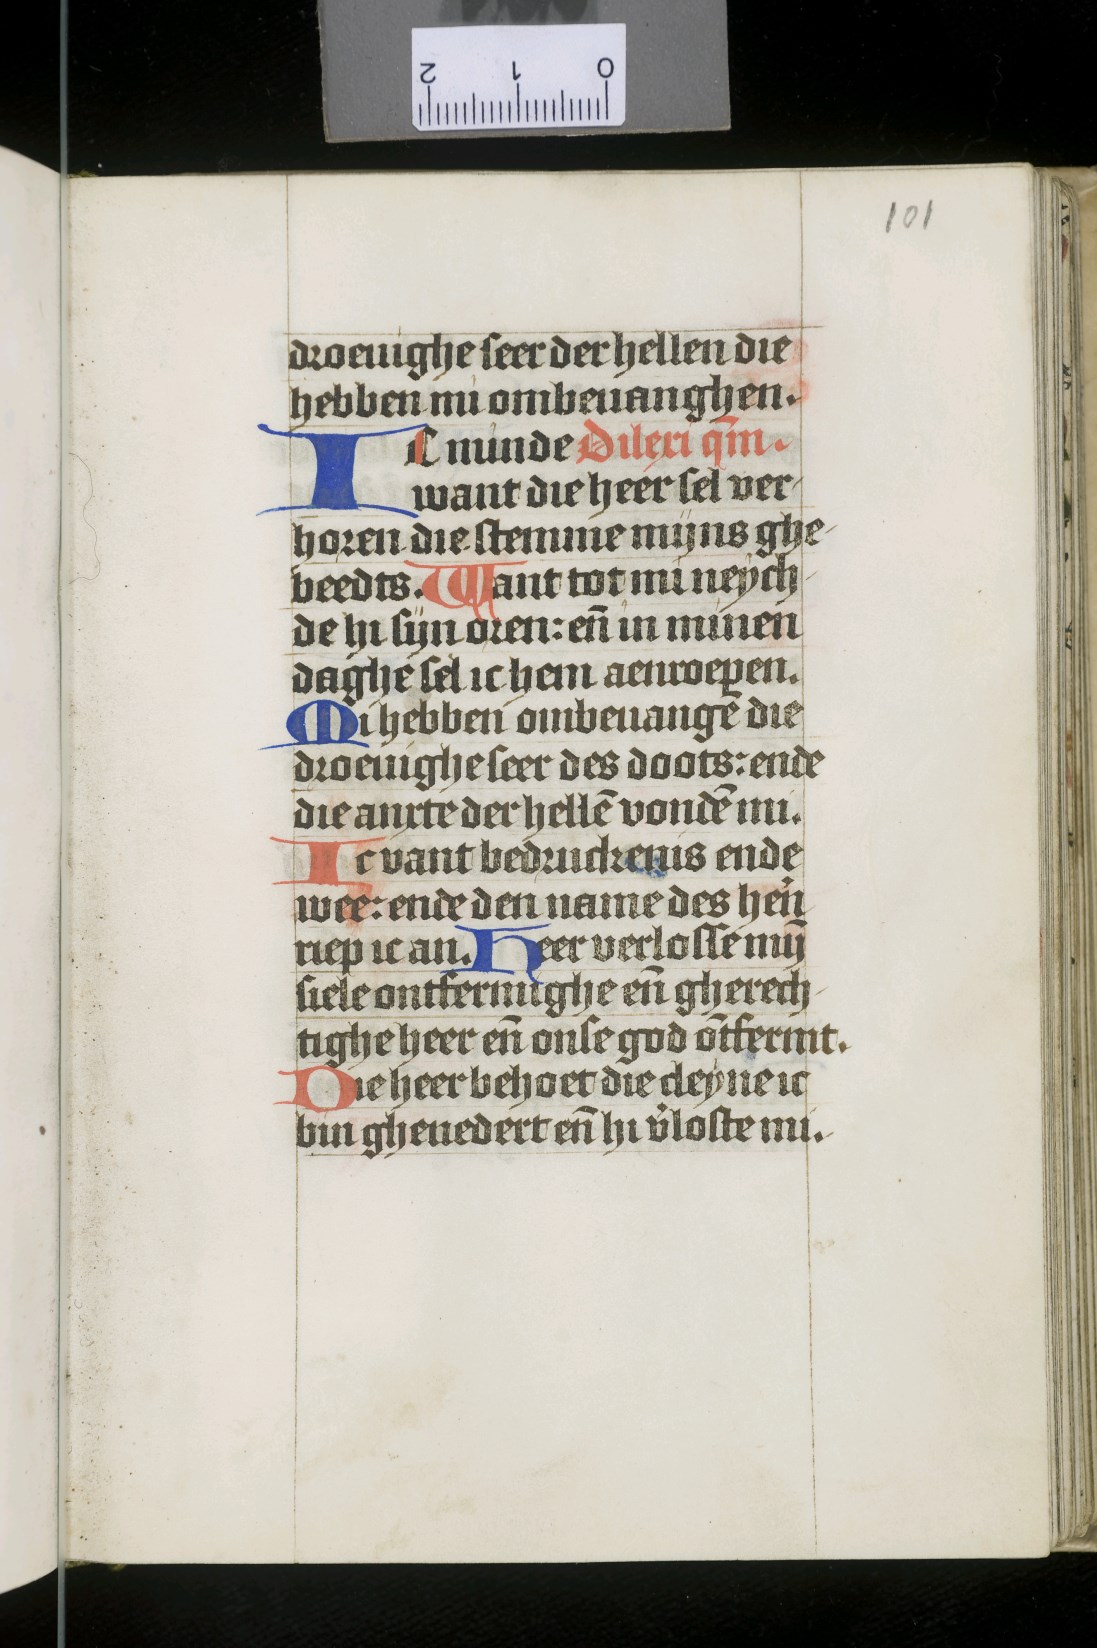 2 1 0
101
droeuighe seer der hellen die
hebben mi ombeuanghen.
IC minde Dilexi qm̄.
want die heer sel ver-
horen die stemme mijns ghe-
beedts. Want tot mi neych-
de hi sijn oren: en̄ in minen
daghe sel ic hem aenroepen.
Mi hebben ombeuangē die
droeuighe seer des doots: ende
die anxte der hellē vondē mi.
Ic vant bedruckenis ende
wee: ende den name des heῆ
riep ic an. Heer verlosse mij̄
siele ontfermighe en̄ gherech-
tighe heer en̄ onse god ōtfermt.
Die heer behoet die cleyne ic
bin gheuedert en̄ hi v̓loste mi.